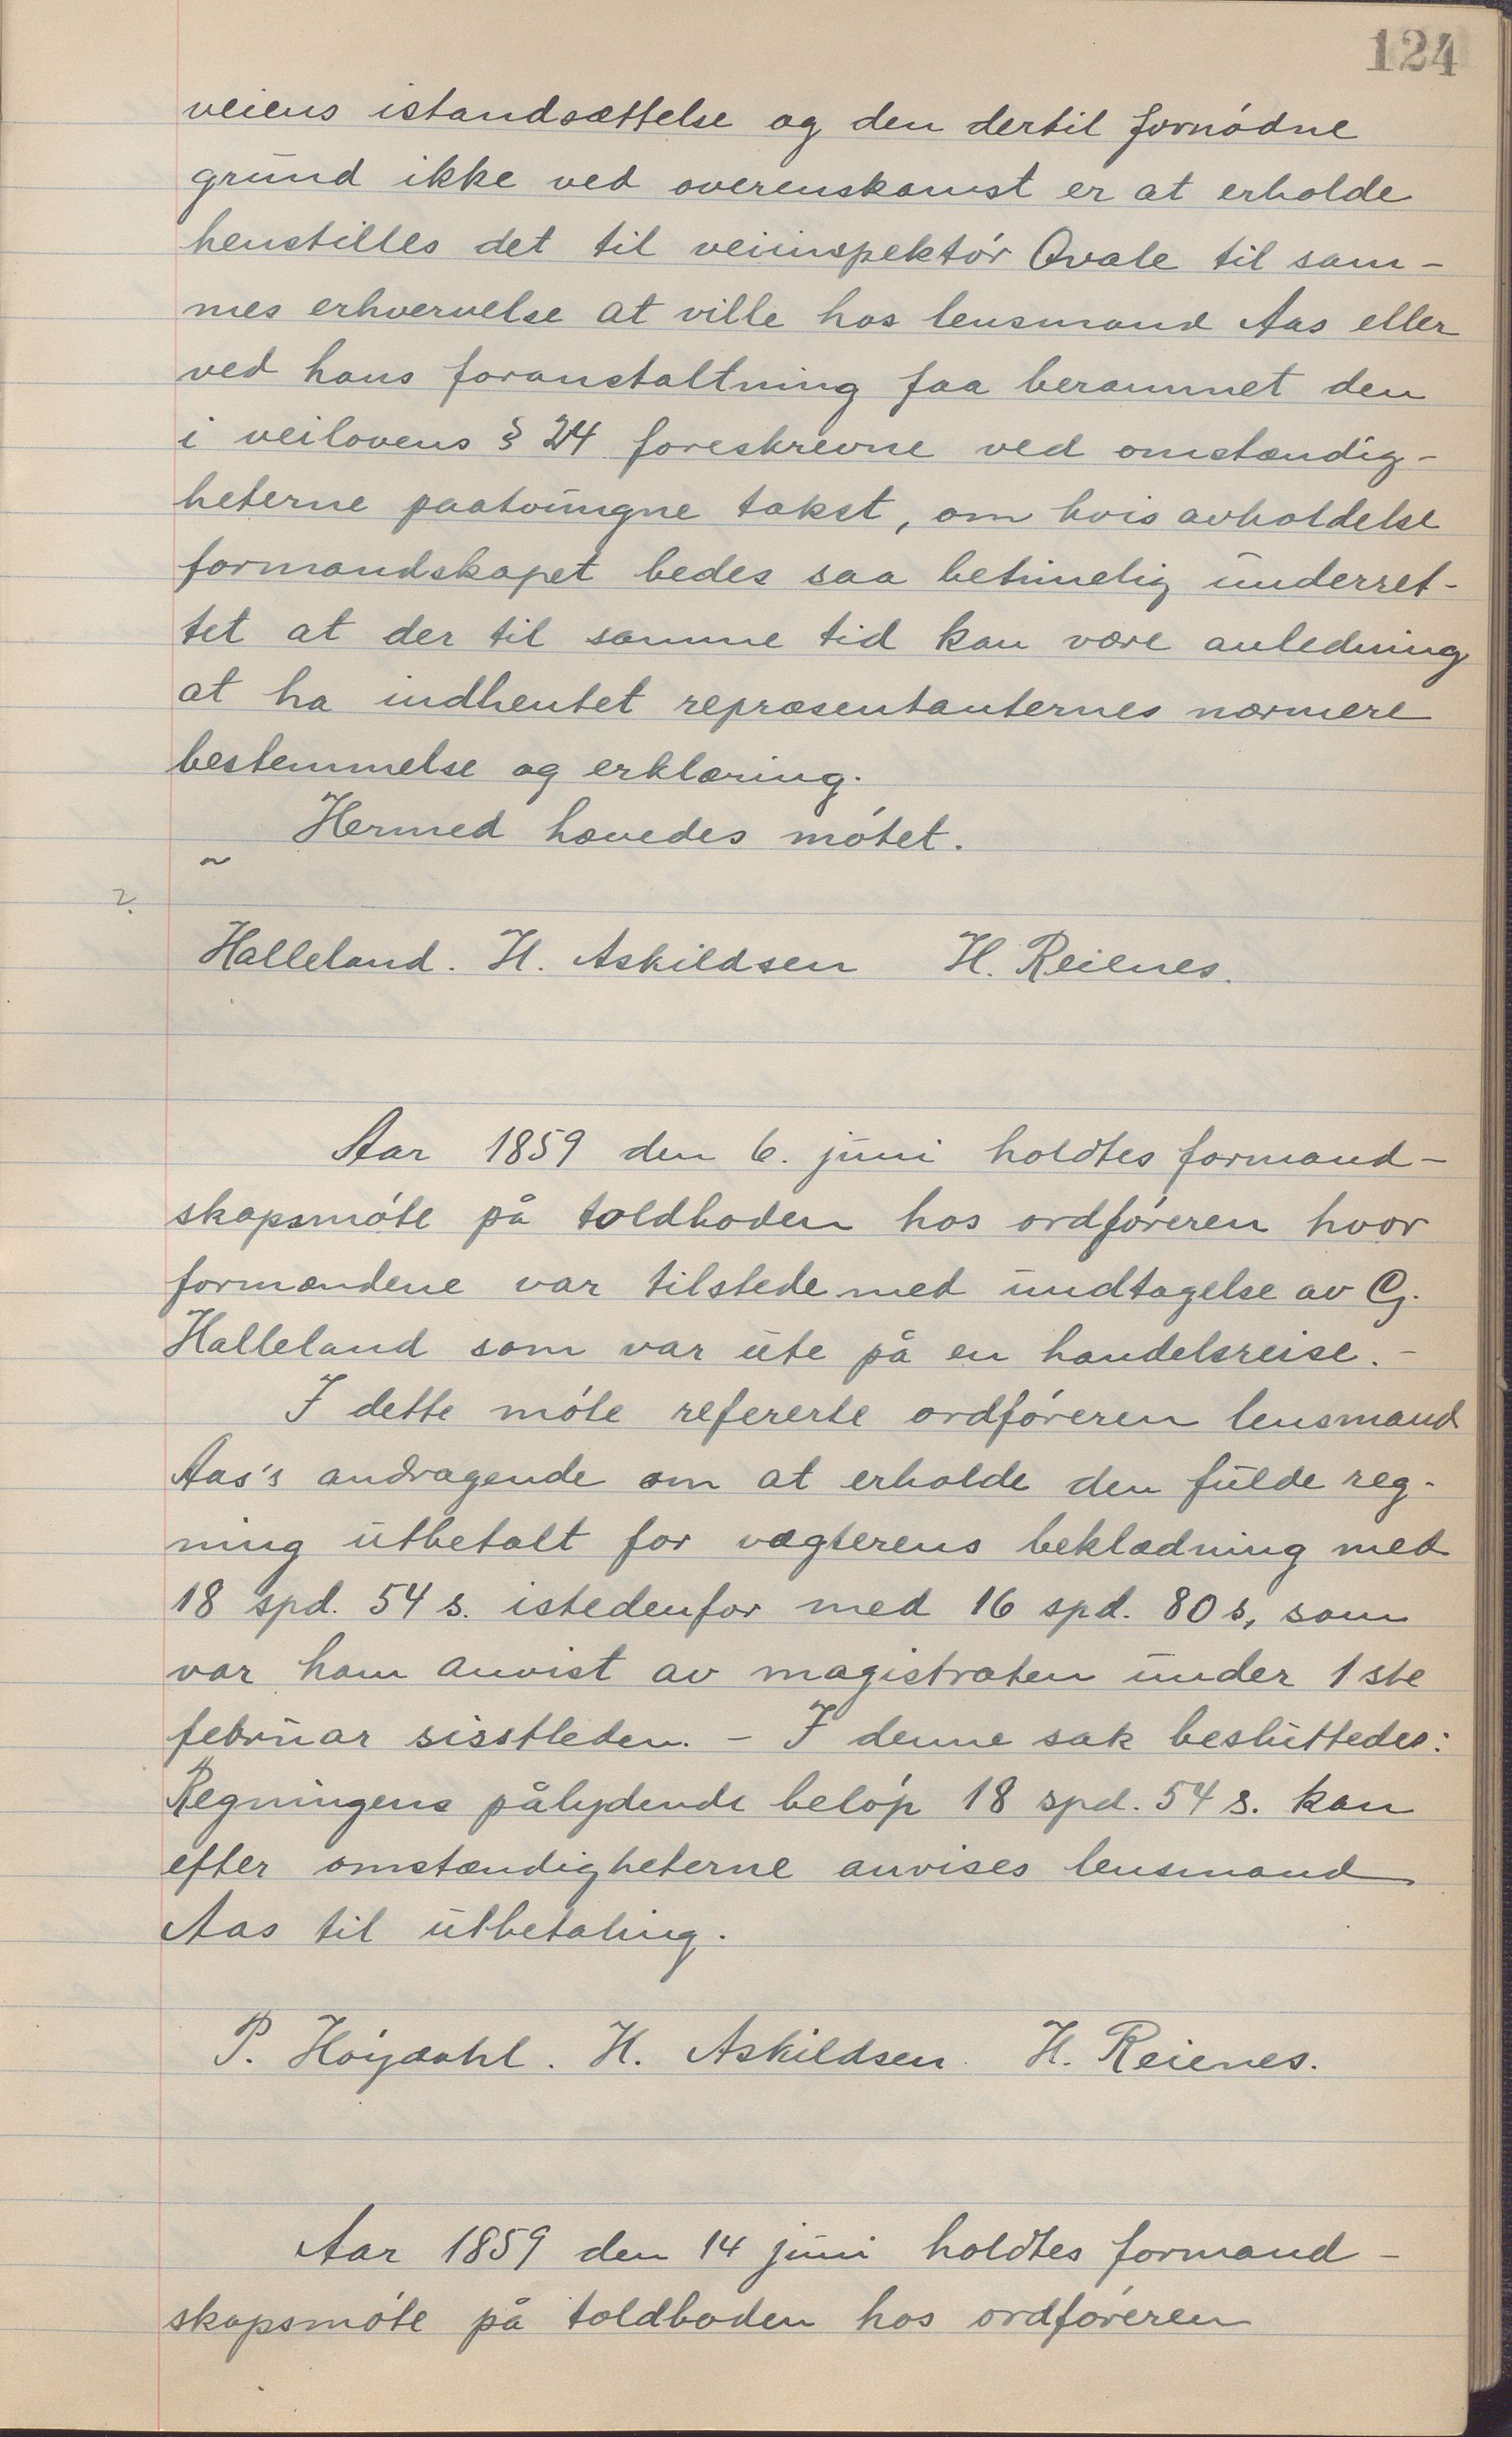 124
veiens istandsættelse og den dertil fornødne
grund ikke ved overenskomst er at erholde
henstilles det til veiinspektør Qvale til sam-
mes erhvervelse at ville hos lensmand Aas eller
ved hans foranstaltning faa berammet den
i veilovens § 24 foreskrevne ved omstændig-
heterne paatvungne takst, om hvis avholdelse
formandskapet bedes saa betimelig underret-
tet at der til samme tid kan være anledning
at ha indhentet repræsentanternes nærmere
bestemmelse og erklæring.
Hermed hævedes møtet.
~
?
Halleland. H. Askildsen H. Reienes.
Aar 1859 den 6. juni holdtes formand-
skapsmøte på toldboden hos ordføreren hvor
formændene var tilstede med undtagelse av G.
Halleland som var ute på en handelsreise. -
I dette møte refererte ordføreren lensmand
Aas's andragende om at erholde den fulde reg-
ning utbetalt for vægterens beklædning med
18 spd. 54 s. istedenfor med 16 spd. 80 s, som
var ham anvist av magistraten under 1ste
februar sisstleden. - I denne sak besluttedes:
Regningens pålydende beløp 18 spd. 54 s. kan
efter omstændigheterne anvises lensmand
Aas til utbetaling.
P. Høydahl. H. Askildsen. H. Reienes.
Aar 1859 den 14 juni holdtes formand-
skapsmøte på toldboden hos ordføreren